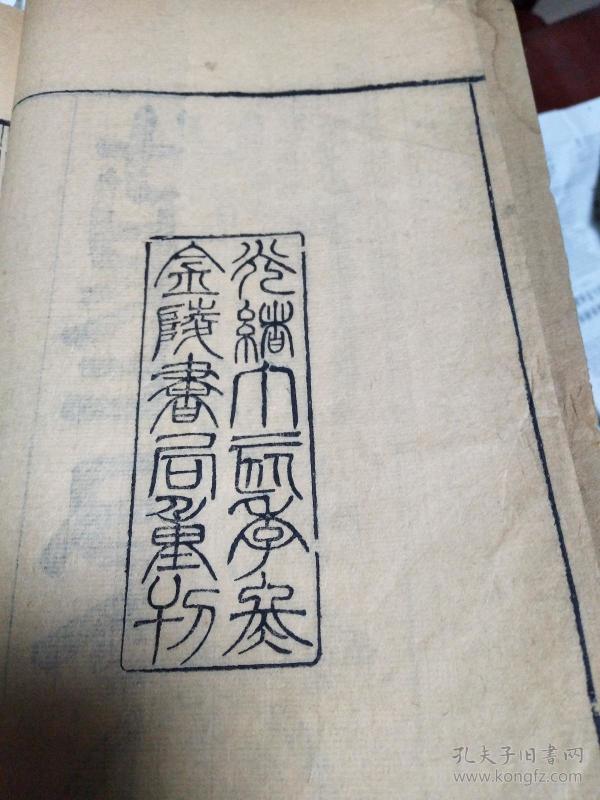 光緒丁酉季冬
金陵書局重刊
孔夫子旧書网
www.kongfz.com